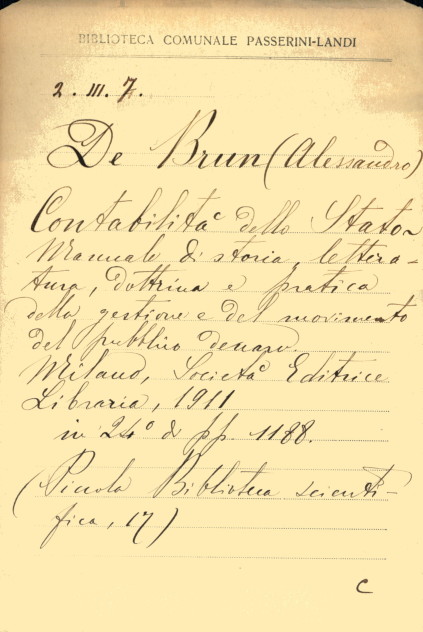 BIBLIOTECA COMUNALE PASSERINI-LANDI
2. III. 7.
De Brun (Alessandro)
Contabilità dello Stato~
Manuale di storia, lettera-
tura, dottrina e pratica
della gestione e del movimento
del pubblico denaro.
Milano, Società Editrice
Libraria, 1911
in 24° di pp. 1188.
(Piccola Biblioteca scienti-
fica, 17)
C